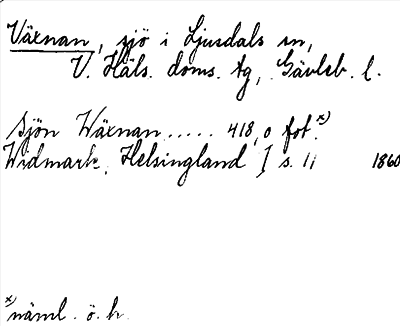 Växnan, sjö i Ljusdals sn,
V. Häls. doms. tg, Gävleb. l.
Sjön Wäxnan..... 418,0 fot.x)
Widmark, Helsingland I s. 11 1860
x) näml. ö. h.